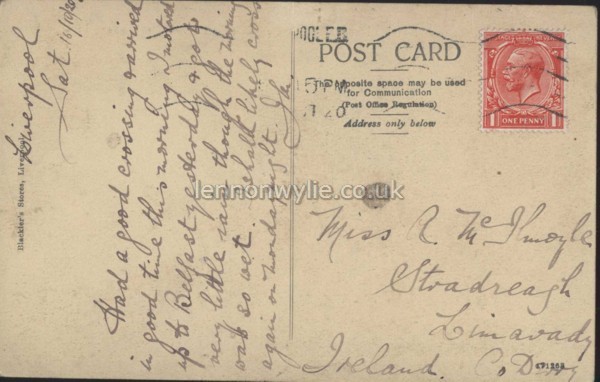 Liverpool
Sat. 16/10/20
Had a good crossing arrived
in good time this morning. I motored
up to Belfast yesterday & got
very little rain though the
was so wet. shall likely cross
again on Monday night. Ja.
Blackler's Stores, Liverpool
POOL.E.R
5 PM
POST CARD
The opposite space may be used
for Communication
(Post Office Regulation)
Address only below
1 ONE PENNY 1
lennonwylie.co.uk
Miss R. McIlmoyle
Stradreagh
Limavady
Ireland. Co Derry